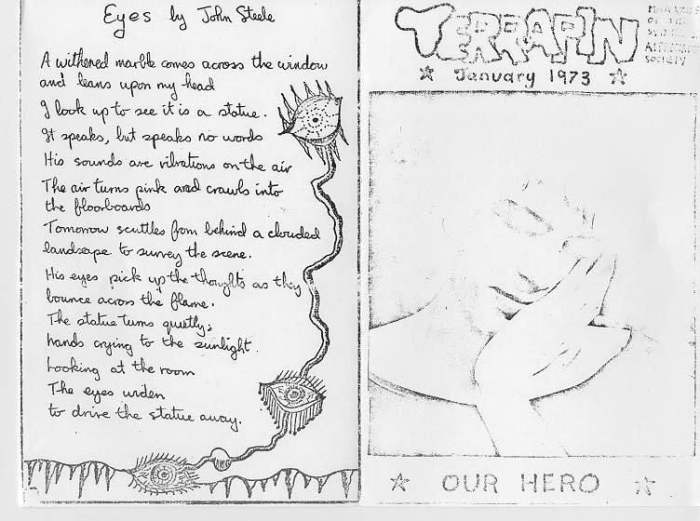 Eyes by John Steele
A withered marble comes across the window
and leans upon my head
I look up to see it is a statue.
It speaks, but speaks no words
His sounds are vibrations on the air
The air turns pink and crawls into
the floorboards
Tomorrow scuttles from behind a clouded
landscape to survey the scene.
His eyes pick up the thoughts as they
bounce across the flame.
The statue turns quietly;
hands crying to the sunlight.
Looking at the room
The eyes widen
to drive the statue away.
TERRAPIN
January 1973
Society
OUR HERO